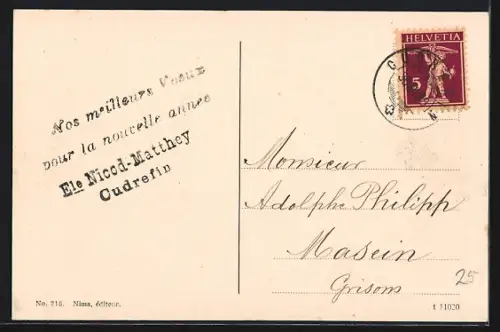 Nos meilleurs Voeux
pour la nouvelle année
Ele Nicod-Matthey
Cudrefin
HELVETIA
5
Monsieur
Adolphe Philipp
Masein
Grisons
25
No. 216. Nims, éditeur.
t 11020